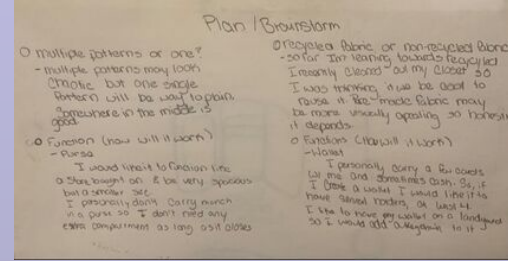 Plan / Brainstorm
O multiple patterns or one?
- multiple patterns may look
chaotic but one single
pattern will be way to plain
Somewhere in the middle is
good
O Function (how will it work)
- Purse
I would like it to function like
a store bought one & be very spacious
but a smaller size
I personally don't carry much
in a purse so I don't need any
extra compartment as long as it closes
O recycled fabric or non-recycled fabric
- so far I'm leaning towards recycled
I recently cleaned out my closet so
I was thinking it would be cool to
reuse it. Pre-made fabric may
be more visually appealing so honestly
it depends.
O Functions (How will it work)
- Wallet
I personally carry a few cards
w/ me and sometimes cash. So, if
I create a wallet I would like it to
have holders, at least 4.
I like to have my wallet on a landyard
so I would add a keychain to it